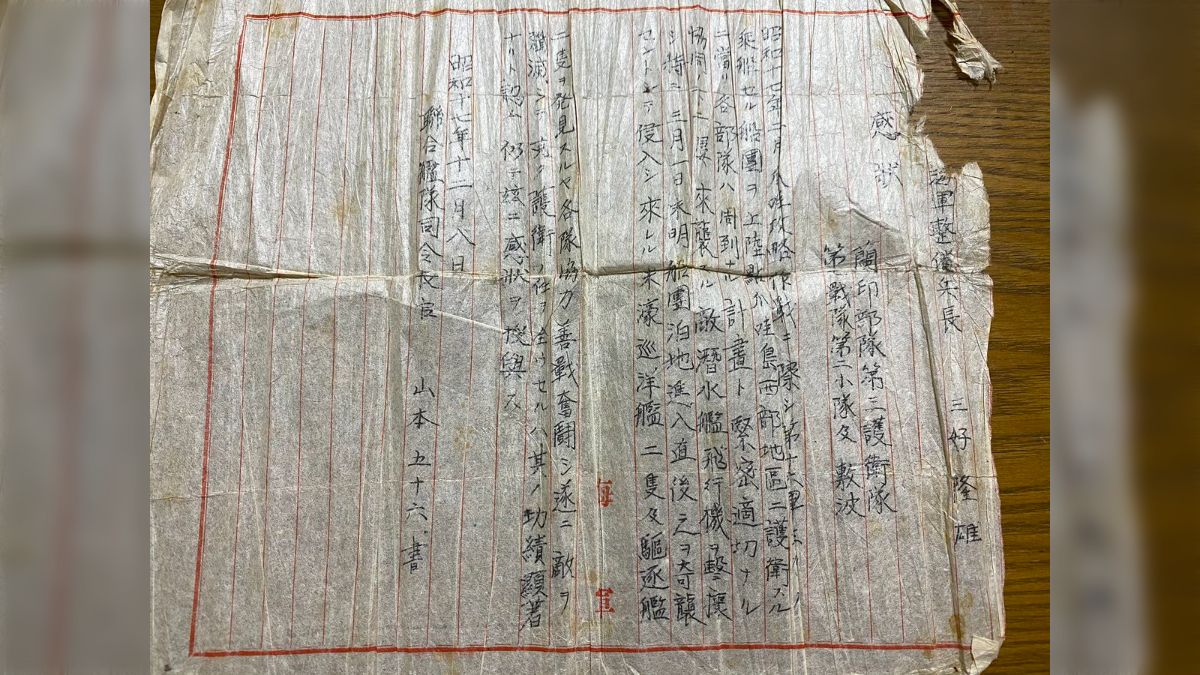 海軍整備兵長 三好隆雄
感状
蘭印部隊第三護衛隊
戦隊第二小隊及敷波
昭和十七年二月爪哇攻略作戦ニ際シ第十六軍主力ノ
乗船セル船團ヲ上陸點爪哇島西部地區ニ護衛スル
ニ當リ各部隊ハ周到ナ計畫ト緊密適切ナル
協同トニ 来襲スル敵潜水艦飛行機ヲ撃攘
シ特ニ三月一日未明船團泊地進入直後之ヲ奇襲
セントシテ侵入シ來レル米濠巡洋艦二隻及驅逐艦
海軍
一隻ヲ発見スルヤ各隊協力善戰奮闘シ遂ニ敵ヲ
殲滅シ克ク護衛ノ任ヲ全ウセルハ其ノ功績顕著
ナリト認ム仍テ茲ニ感状ヲ授與ス
昭和十七年十二月八日
聯合艦隊司令長官 山本五十六 書